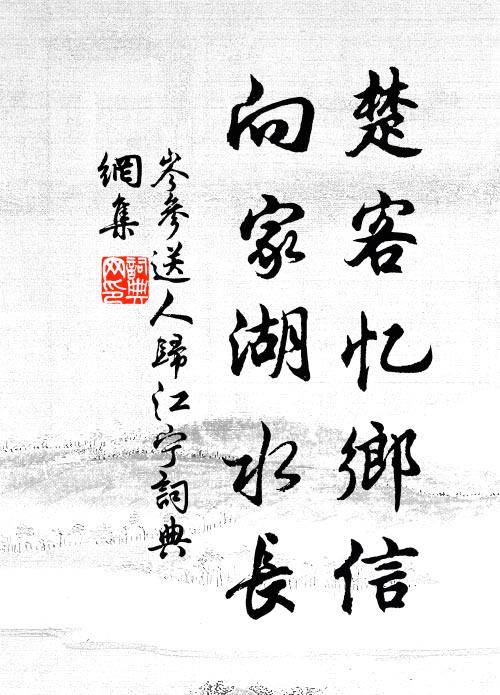 楚客忆鄉信
向家湖水長
岑參送人歸江宁詞典
網集
詞典网印